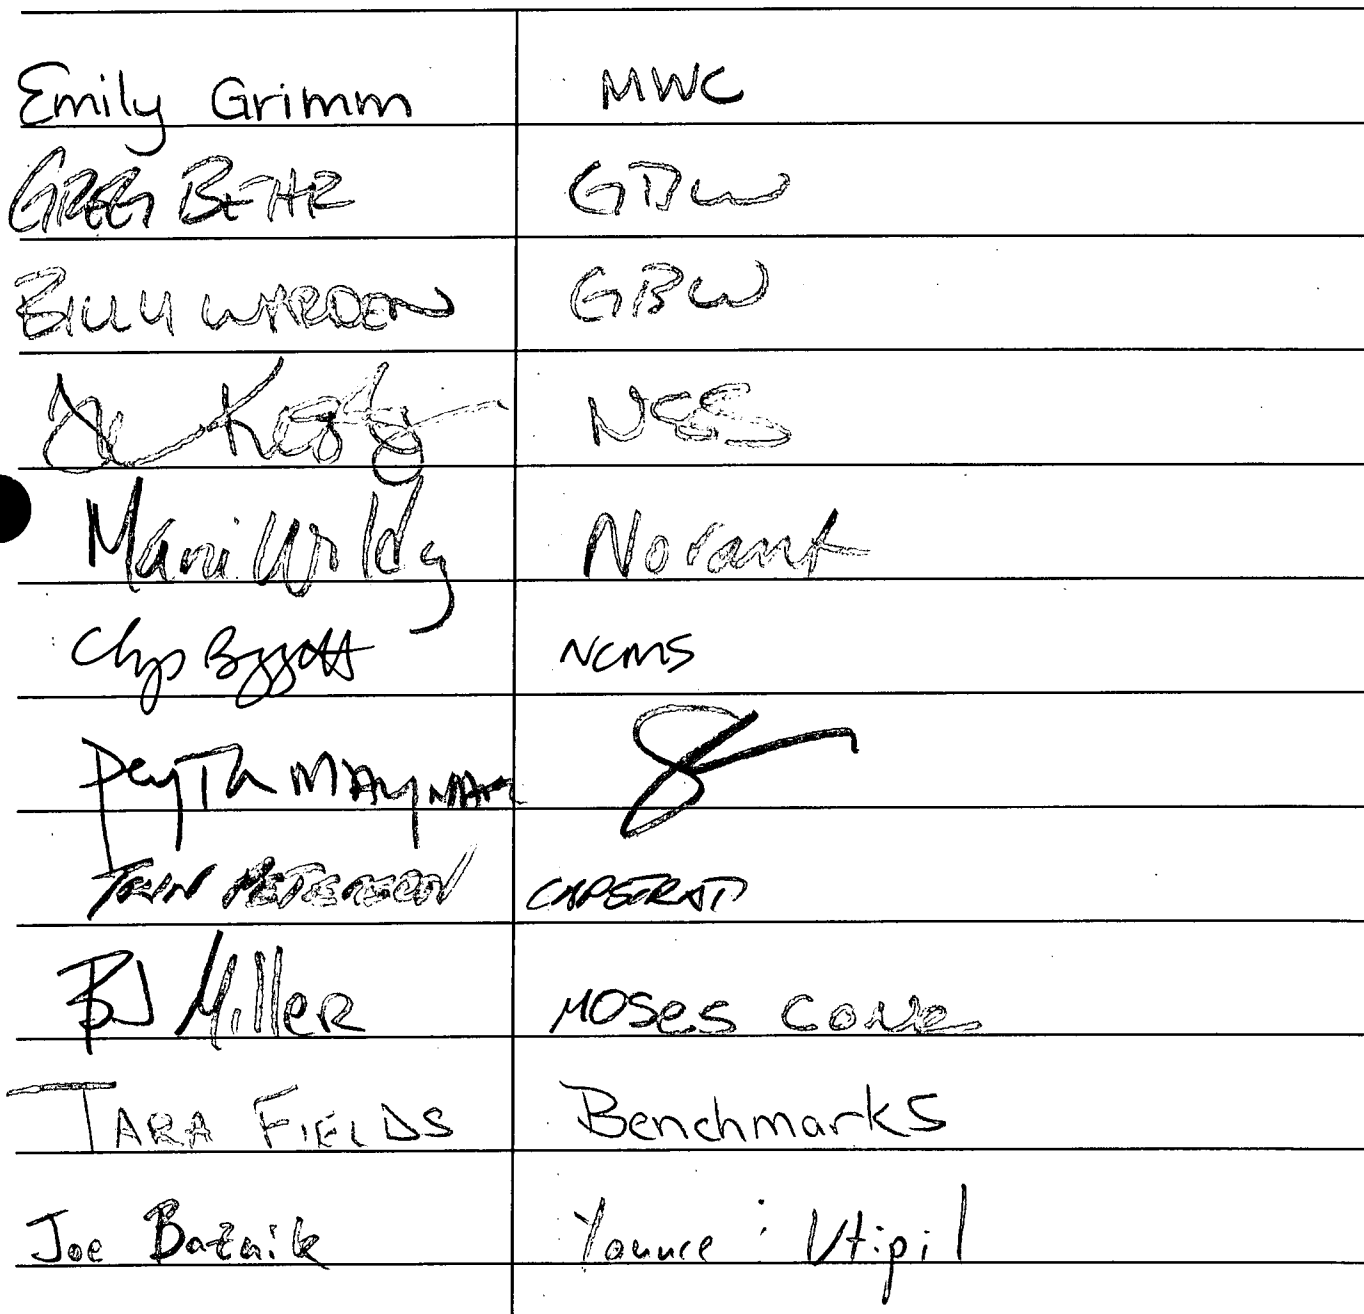 Emily Grimm MWC
GREG BEHR GBW
BILLY WARDEN GBW
NSS
Novant
Chip Baggett NCMS
Peyton MAYNARD
PETERSON CAPSTRAT
BJ Miller Moses Cone
TARA FIELDS Benchmarks
Joe Younce Vtipil